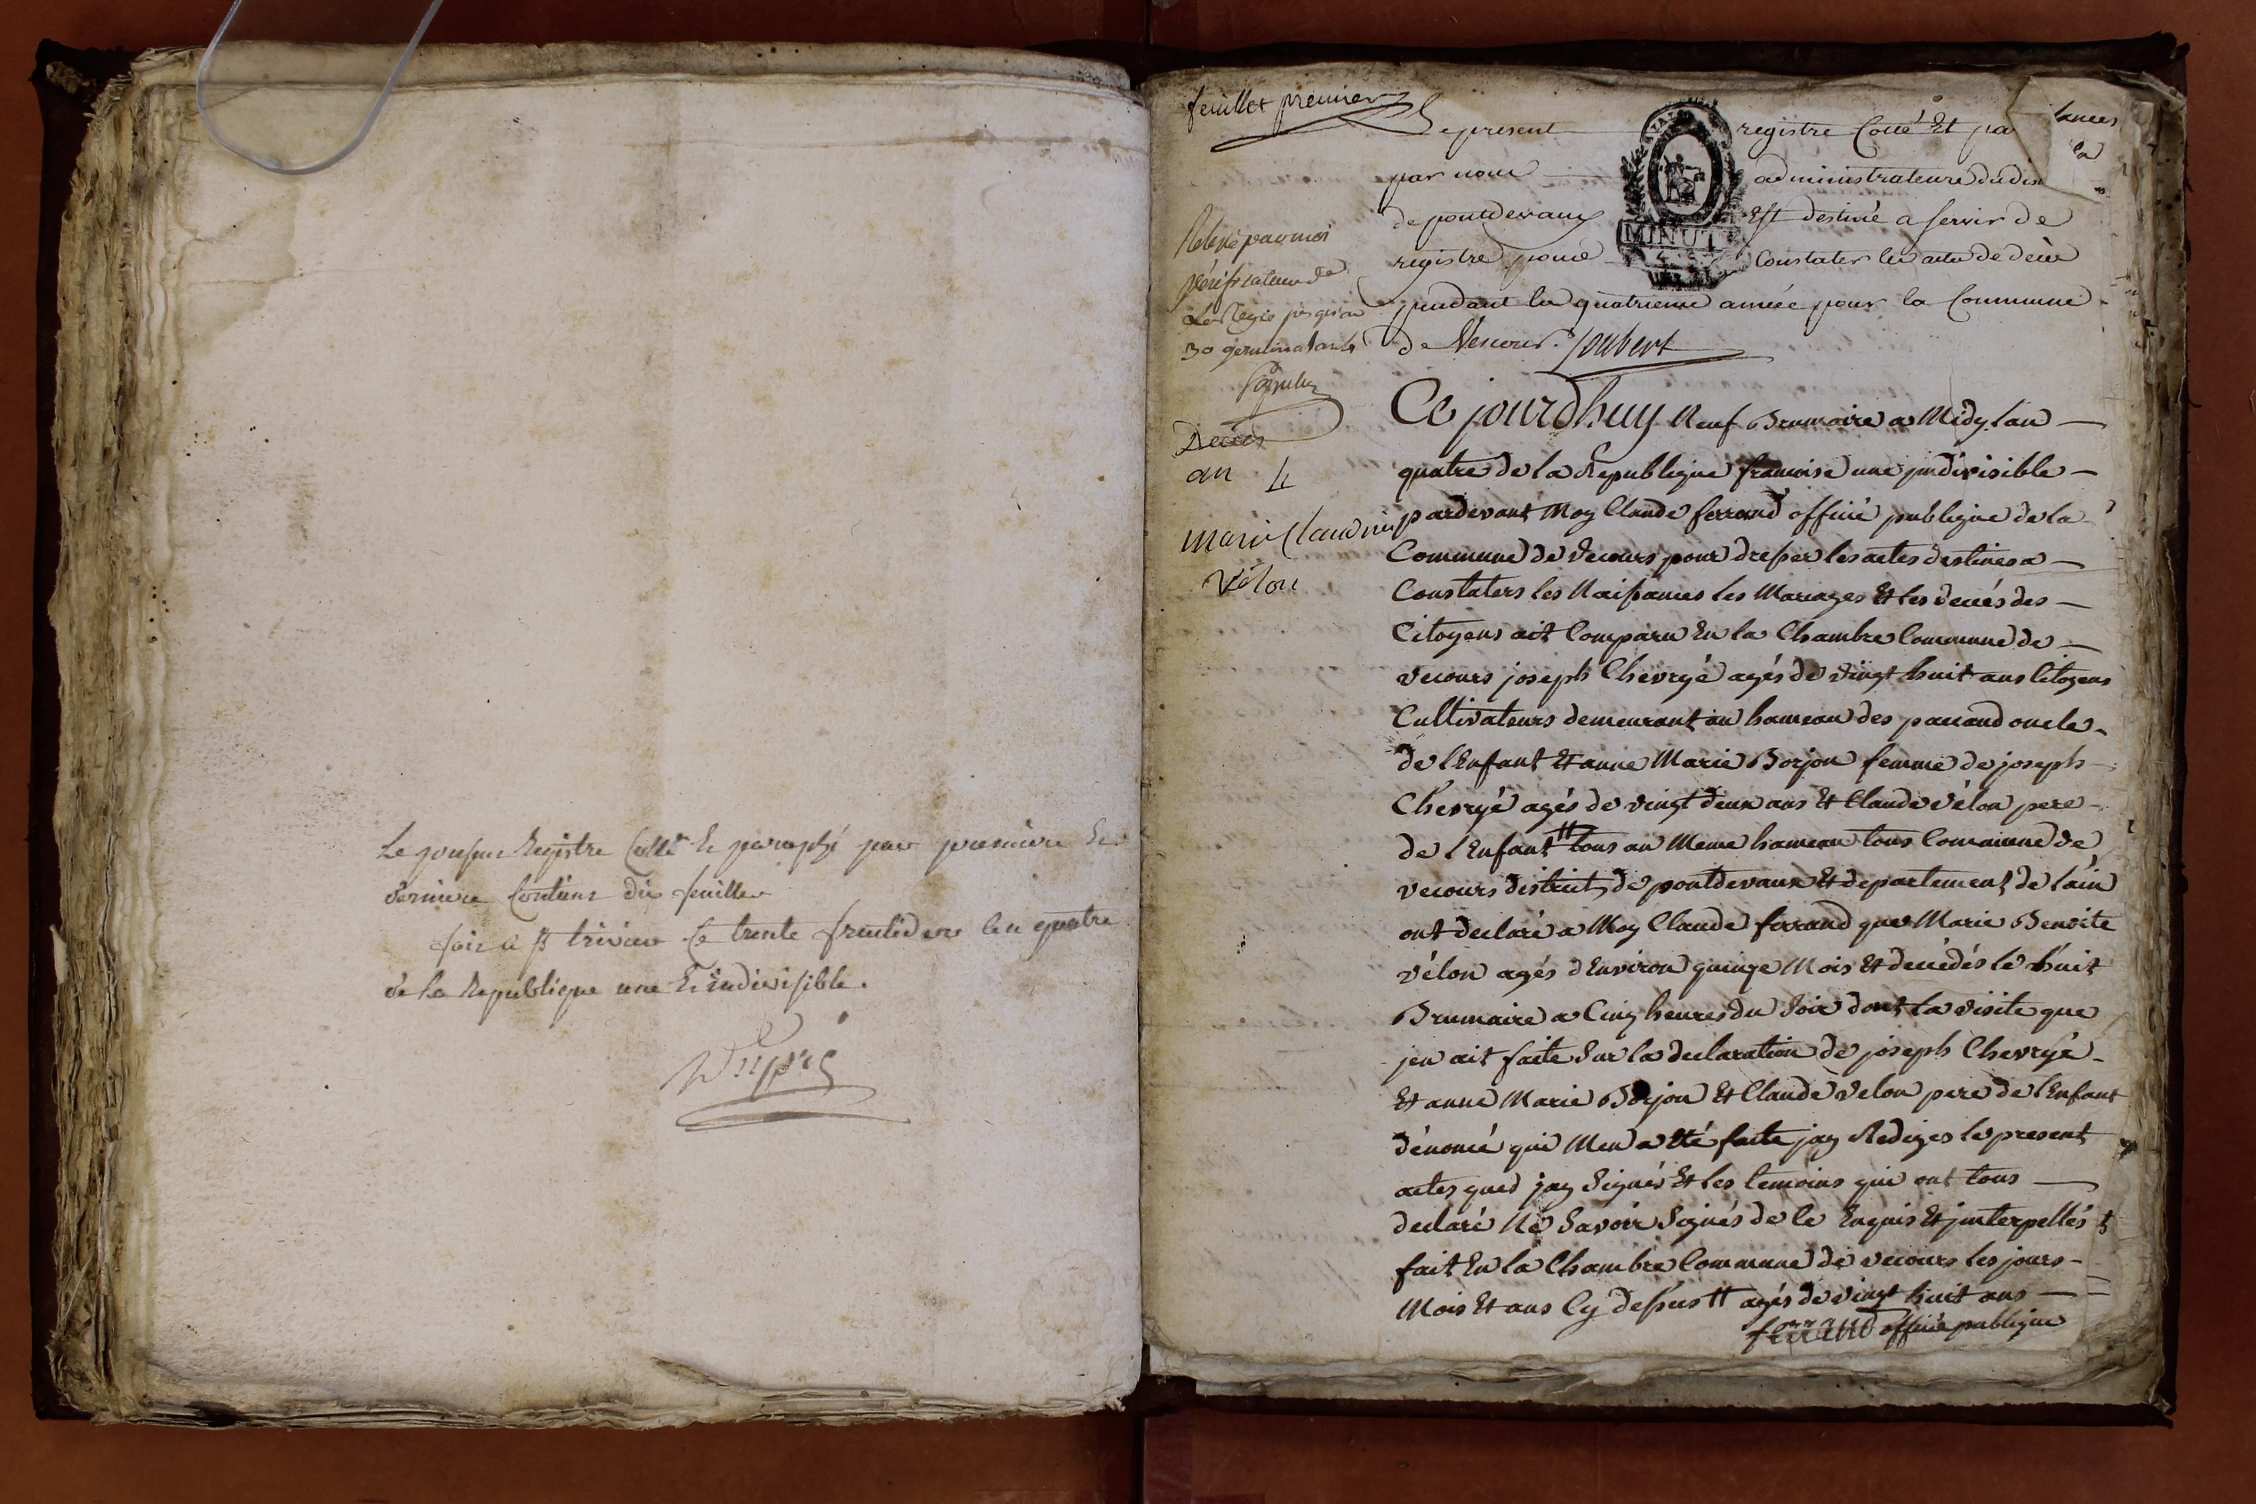 Le present Registre Collé & paraphé par premiere &
derniere Contient dix feuillets
fait a st trivier Ce trente fructidore lan quatre
de la Republique une & indivisible.
Dupré
feuillet premier
Le present registre Cotté Et pa
par nous administrateurs du dis
de pontdevaux Est destiné a servir de
registre pour Constater les actes de décès
pendant la quatrieme année pour la Commune
de Vescour. Joubert
Relevé par moi
vérificateur de
la Regie jusqu'au
30 germinal an 4
Décès
an 4
marie Claudine
Vélon
MINUTE
Ce jourdhuy Neuf Brumaire a Midy lan
quatre de la Republique francoise une jndivisible
pardevant Moy Claude ferrand officié publique de la
Commune de Vecours pour dresser les actes destines a
Constaters les Naissances les Mariages Et les decués des
Citoyens ait Comparu En la Chambre Commune de
vecours joseph Chevryé agés de vingt huit ans Citoyens
Cultivateurs demeurant au hameau des pacaud oncle
de l'Enfant Et anne Marie Borjon femme de joseph
Chevryé agés de vingt deux ans Et Claude vélon pere
de lEnfant # tous au Meme hameau tous Commune de
vecours district de pontdevaux Et departement de lain
ont declaré a Moy Claude ferrand que Marie Benoite
vélon agés dEnviron quinze Mois Et decédés le huit
Brumaire a Cinq heures du Soir dont la visite que
jen ait faite Sur la declaration de joseph Chevryé
Et anne Marie Borjon Et Claude velon pere de lEnfant
dénoncé qui Men a Eté faite jay Rediges le present
actes que jay Signés Et les temoins qui ont tous
declaré Ne Savoir Signés de ce Enquis Et jnterpellés
fait En la Chambre Commune de vecours les jours
Mois Et ans Cy dessus # agés de vingt huit ans
ferrand officié publique